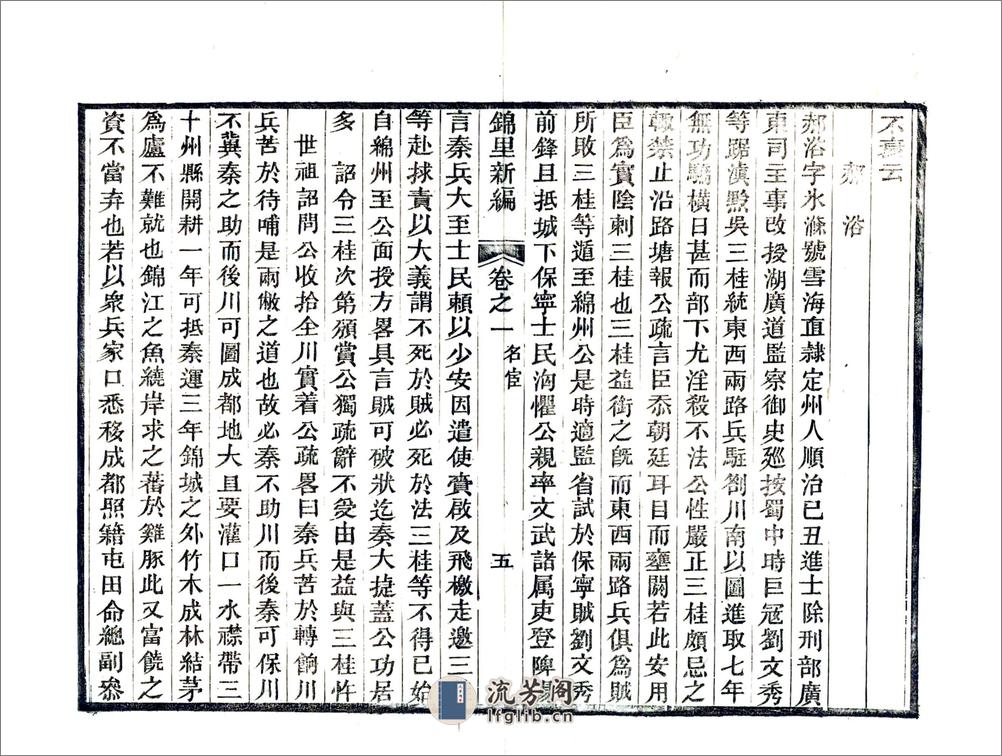 不衰云
郝浴
郝浴字氷滌號雪海直隷定州人順治已丑進士除刑部廣
東司主事改授湖廣道監察御史廵按蜀中時巨冦劉文秀
等踞滇黔吳三桂統東西兩路兵駐劄川南以圖進取七年
無功驕橫日甚而部下尤淫殺不法公性嚴正三桂頗忌之
輙禁止沿路塘報公疏言臣忝朝廷耳目而壅閼若此安用
臣爲實陰刺三桂也三桂益銜之旣而東西兩路兵俱爲賊
所敗三桂等遁至綿州公是時適監省試於保寧賊劉文秀
前鋒且抵城下保寧士民洶懼公親率文武諸属吏登陴
錦里新編 卷之一 名宦 五
言秦兵大至士民頼以少安因遣使賫啟及飛檄走邀三桂
等赴捄責以大義謂不死於賊必死於法三桂等不得已始
自綿州至公面授方畧具言賊可破狀迄奏大捷蓋公功居
多 詔令三桂次第頒賞公獨疏辭不受由是益與三桂忤
世祖詔問公收拾全川實着公疏畧曰秦兵苦於轉餉川
兵苦於待哺是兩敝之道也故必秦不助川而後秦可保川
不冀秦之助而後川可圖成都地大且要灌口一水襟帶三
十州縣開耕一年可抵秦運三年錦城之外竹木成林結茅
爲廬不難就也錦江之魚繞岸求之蓄於雞豚此又富饒之
資不當弃也若以衆兵家口悉移成都照籍屯田命總副叅
流芳閣
lfglib.cn